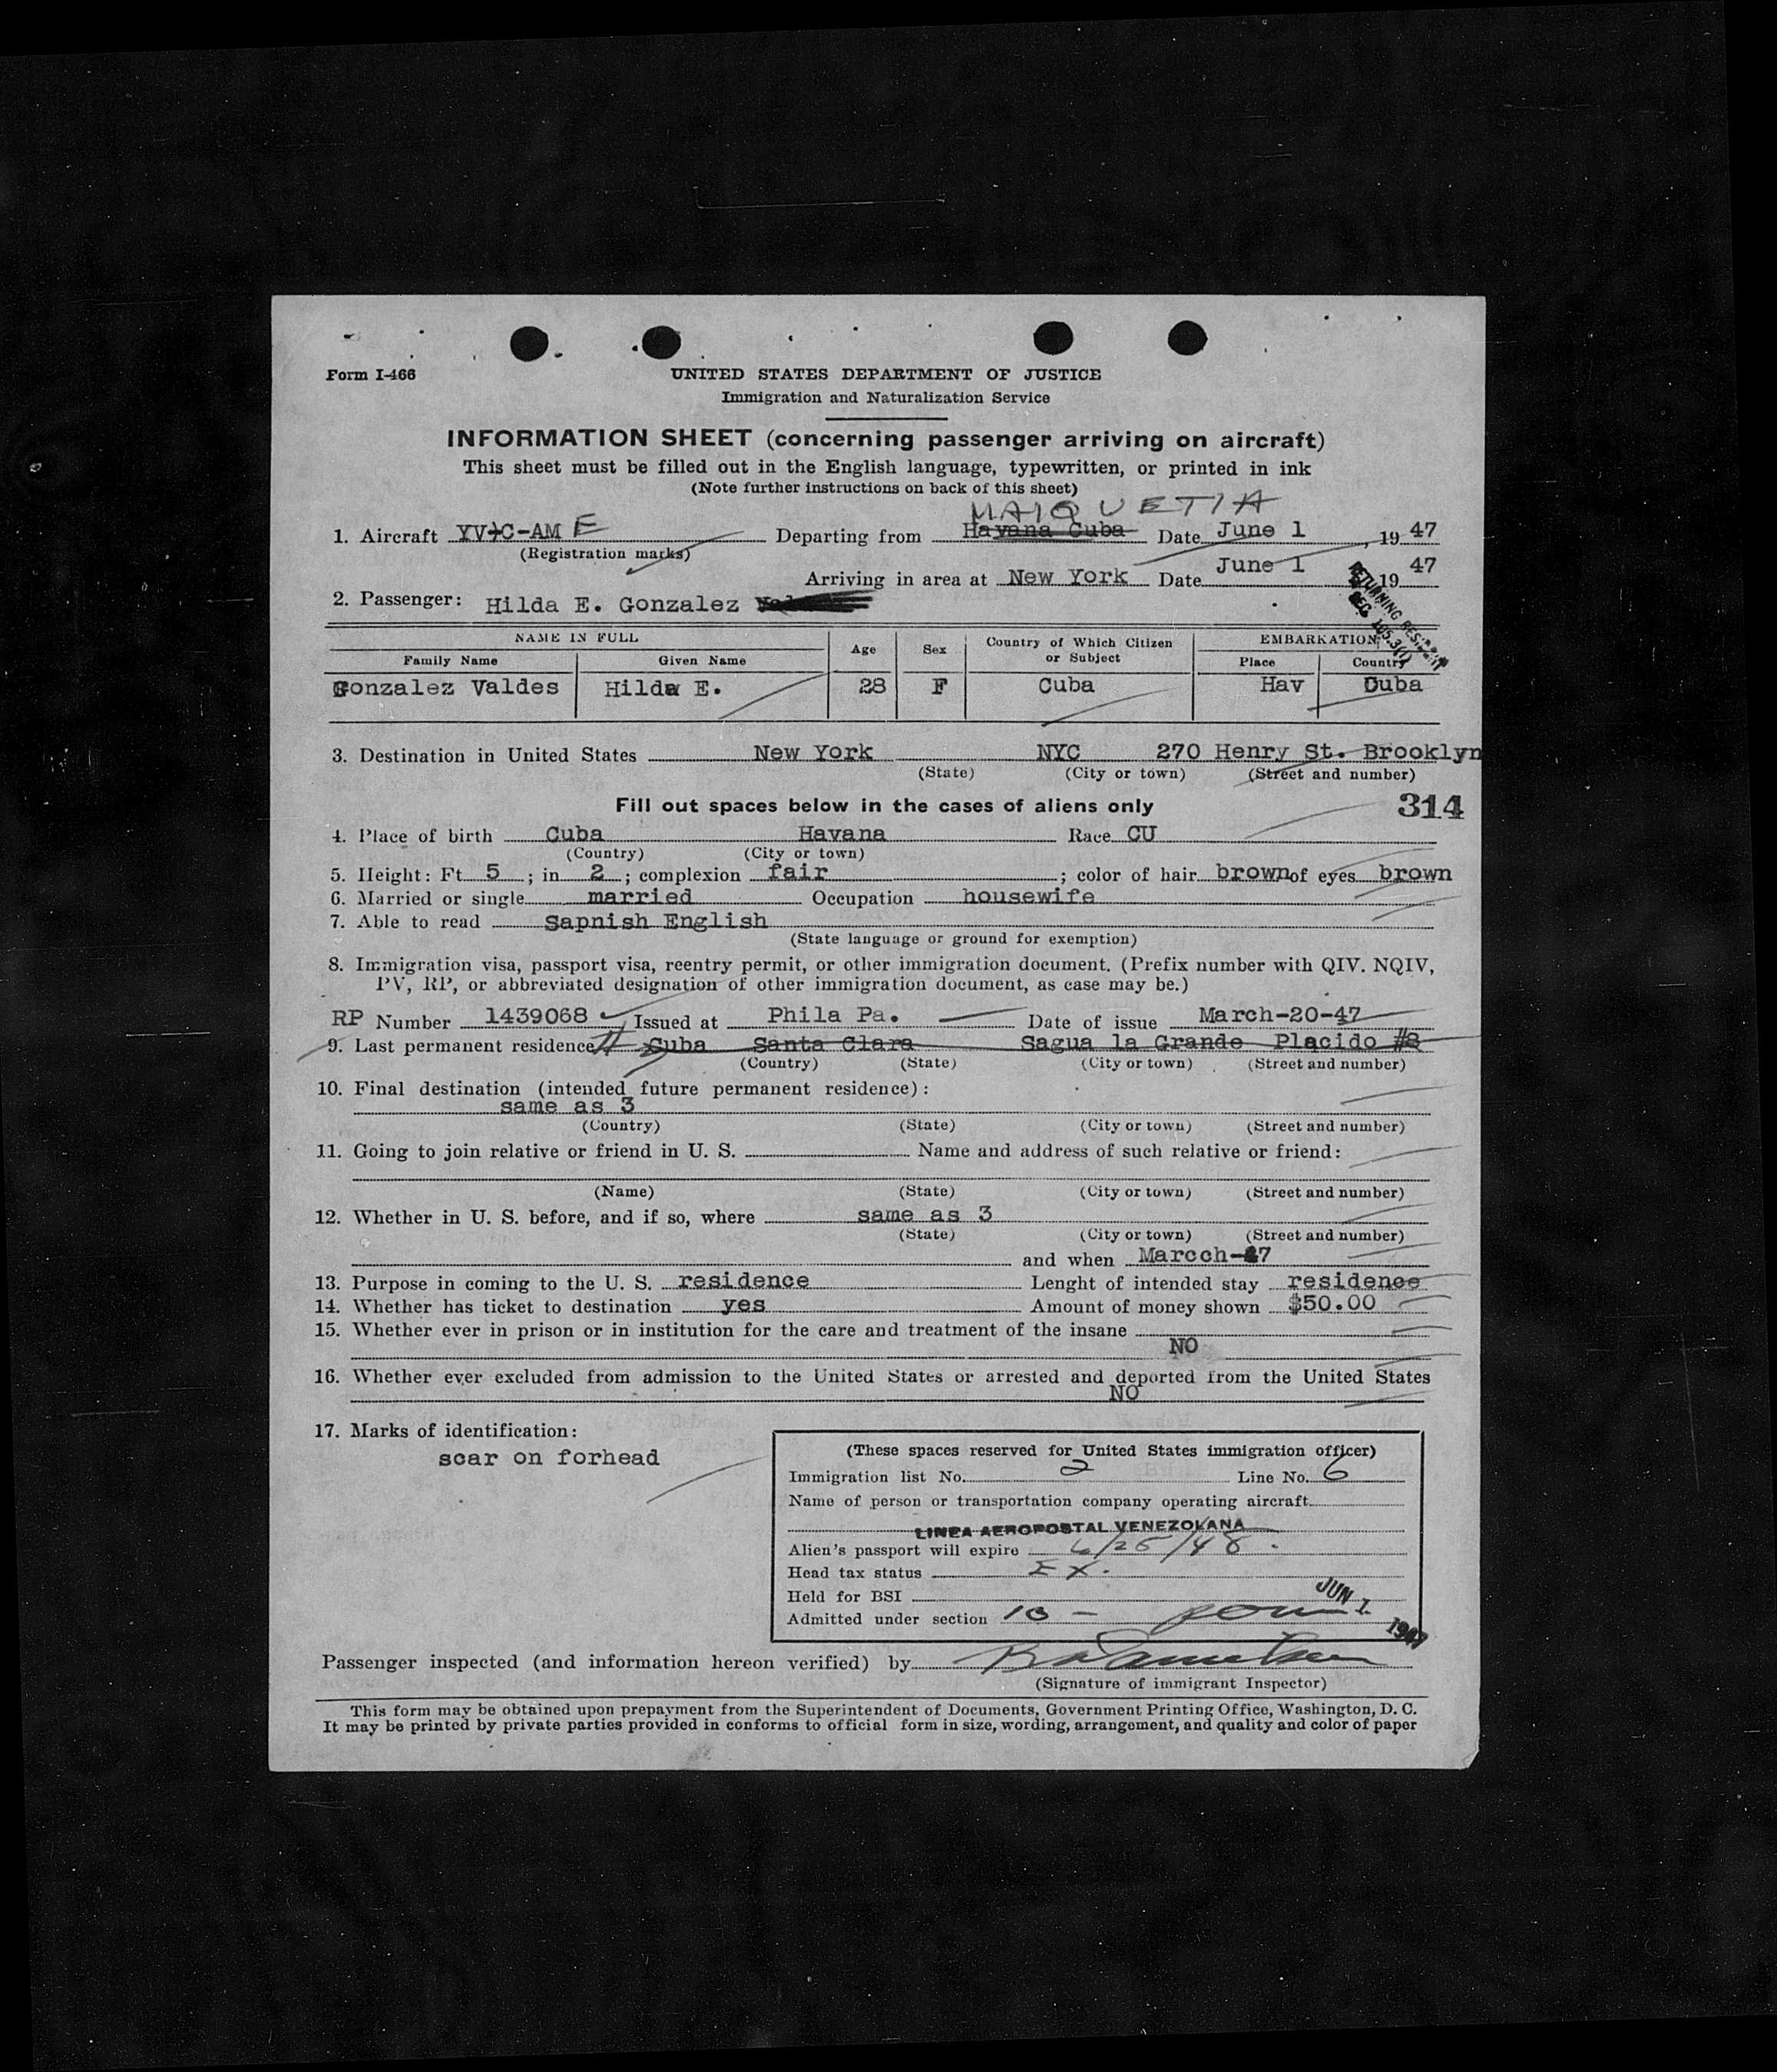 Form I-466
UNITED STATES DEPARTMENT OF JUSTICE
Immigration and Naturalization Service
INFORMATION SHEET (concerning passenger arriving on aircraft)
This sheet must be filled out in the English language, typewritten, or printed in ink
(Note further instructions on back of this sheet)
MAIQUETIA
1. Aircraft YV-C-AM E Departing from Havana Cuba Date June 1, 19 47
(Registration marks)
Arriving in area at New York Date June 1 19 47
RETURNING RESIDENT
SEC. 165.3(1)
2. Passenger: Hilda E. Gonzalez
NAME IN FULL Age Sex Country of Which Citizen or Subject EMBARKATION
Family Name Given Name Place Country
Gonzalez Valdes Hilda E. 28 F Cuba Hav Cuba
3. Destination in United States New York NYC 270 Henry St. Brooklyn
(State) (City or town) (Street and number)
Fill out spaces below in the cases of aliens only 314
4. Place of birth Cuba Havana Race CU
(Country) (City or town)
5. Height: Ft. 5 ; in 2 ; complexion fair ; color of hair brown of eyes brown
6. Married or single married Occupation housewife
7. Able to read Sapnish English
(State language or ground for exemption)
8. Immigration visa, passport visa, reentry permit, or other immigration document. (Prefix number with QIV. NQIV,
PV, RP, or abbreviated designation of other immigration document, as case may be.)
RP Number 1439068 Issued at Phila Pa. Date of issue March-20-47
9. Last permanent residence Cuba Santa Clara Sagua la Grande Placido #8
(Country) (State) (City or town) (Street and number)
10. Final destination (intended future permanent residence):
same as 3
(Country) (State) (City or town) (Street and number)
11. Going to join relative or friend in U. S. Name and address of such relative or friend:
(Name) (State) (City or town) (Street and number)
12. Whether in U. S. before, and if so, where same as 3
(State) (City or town) (Street and number)
and when Marcch-47
13. Purpose in coming to the U. S. residence Lenght of intended stay residence
14. Whether has ticket to destination yes Amount of money shown $50.00
15. Whether ever in prison or in institution for the care and treatment of the insane
NO
16. Whether ever excluded from admission to the United States or arrested and deported from the United States
NO
17. Marks of identification:
scar on forhead
(These spaces reserved for United States immigration officer)
Immigration list No. 2 Line No. 6
Name of person or transportation company operating aircraft
LINEA AEROPOSTAL VENEZOLANA
Alien's passport will expire 6/25/48.
Head tax status EX.
Held for BSI
Admitted under section 10 -
JUN 1 1947
Passenger inspected (and information hereon verified) by
(Signature of immigrant Inspector)
This form may be obtained upon prepayment from the Superintendent of Documents, Government Printing Office, Washington, D. C.
It may be printed by private parties provided in conforms to official form in size, wording, arrangement, and quality and color of paper